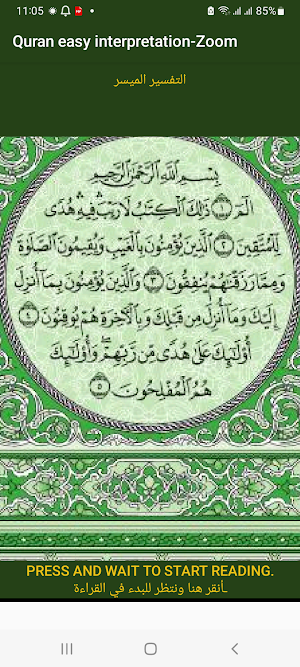 11:05
85%
Quran easy interpretation-Zoom
التفسير الميسر
بِسْمِ اللَّهِ الرَّحْمَٰنِ الرَّحِيمِ
الٓمٓ ١ ذَٰلِكَ الْكِتَٰبُ لَا رَيْبَ ۛ فِيهِ ۛ هُدًى
لِّلْمُتَّقِينَ ٢ الَّذِينَ يُؤْمِنُونَ بِالْغَيْبِ وَيُقِيمُونَ الصَّلَوٰةَ
وَمِمَّا رَزَقْنَٰهُمْ يُنفِقُونَ ٣ وَالَّذِينَ يُؤْمِنُونَ بِمَا أُنزِلَ
إِلَيْكَ وَمَا أُنزِلَ مِن قَبْلِكَ وَبِالْآخِرَةِ هُمْ يُوقِنُونَ ٤
أُولَٰئِكَ عَلَىٰ هُدًى مِّن رَّبِّهِمْ ۖ وَأُولَٰئِكَ
هُمُ الْمُفْلِحُونَ ٥
PRESS AND WAIT TO START READING.
أنقر هنا وننتظر للبدء في القراءة.